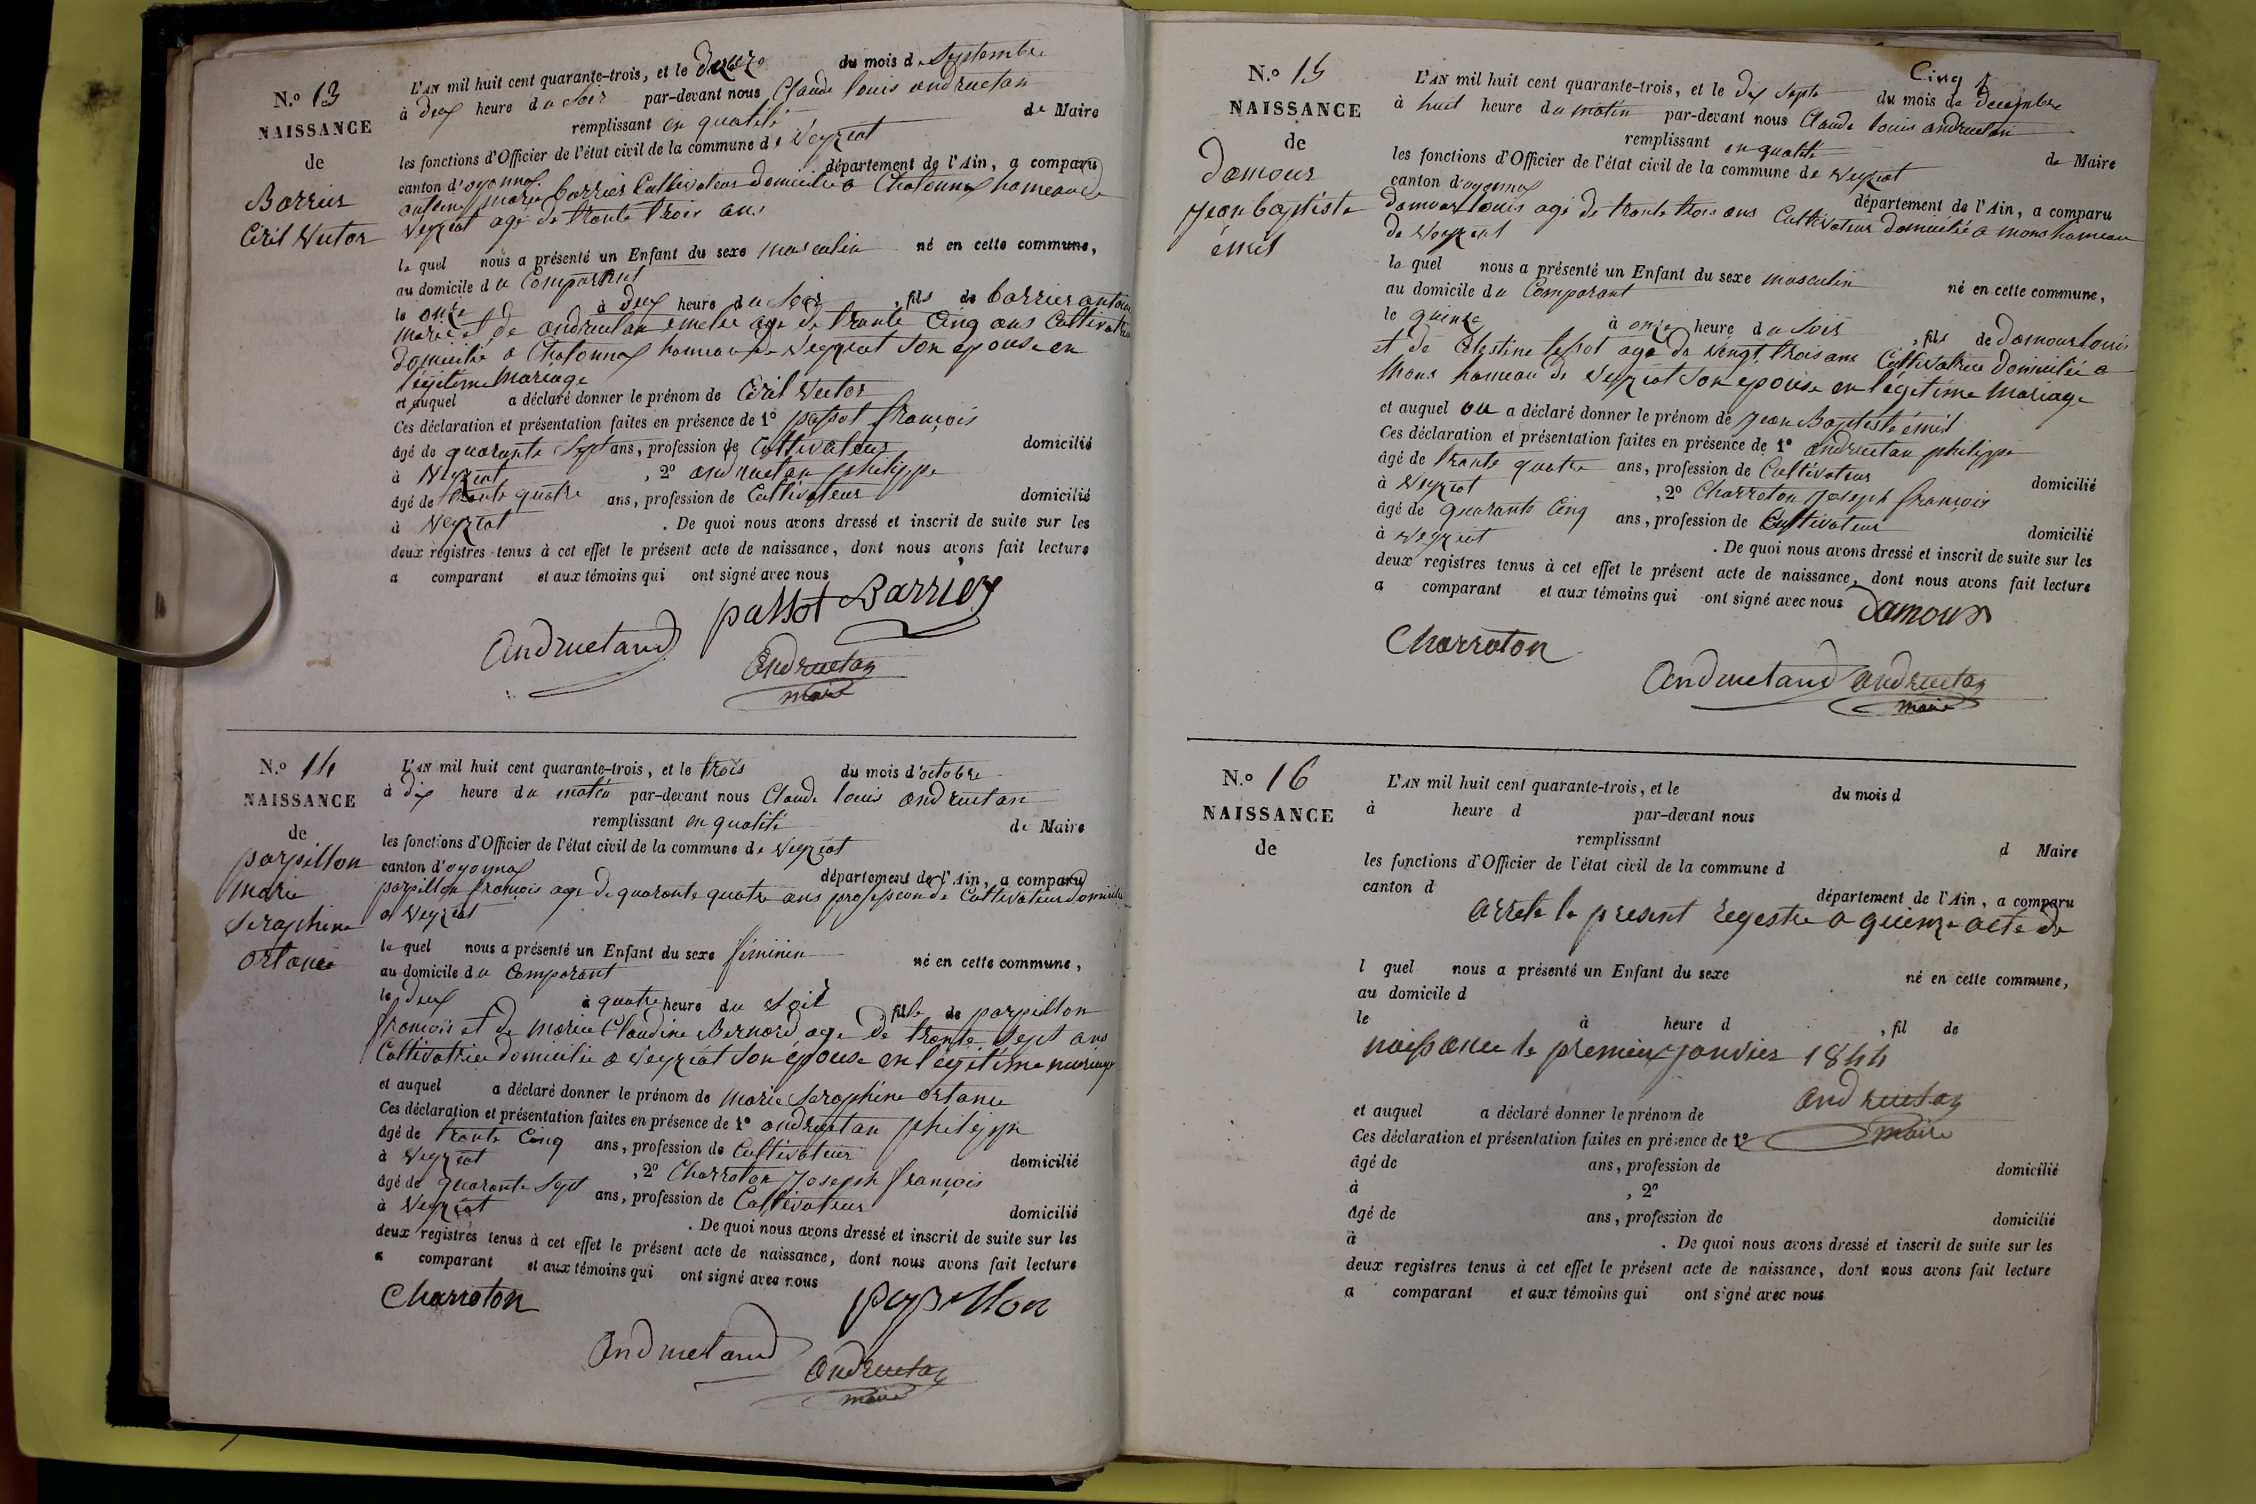 N.o 13
NAISSANCE
de
Barrier
Ciril Victor
L'AN mil huit cent quarante-trois, et le douze du mois de Septembre
à deux heure du Soir par-devant nous Claude louis andruetan
remplissant en qualité de Maire
les fonctions d'Officier de l'état civil de la commune de Veyziat
canton d'oyonnax département de l'Ain, a comparu
antoine marie barrier Cultivateur domicilié a Chatonnax hameau de
Veyziat agé de trante trois ans
le quel nous a présenté un Enfant du sexe masculin né en cette commune,
au domicile du Comparant
le onze à deux heure du Soir, fils de barrier antoine
marie et de andruetan emelie age de trante Cinq ans Cultivatrice
domicilie a Chatonnax hameau de Veyziat son epouse en
légitime Mariage
et auquel a déclaré donner le prénom de Ciril Victor
Ces déclaration et présentation faites en présence de 1º passot françois
âgé de quarante Sept ans, profession de Cultivateur domicilié
à Veyziat, 2º andruetan philippe
âgé de trante quatre ans, profession de Cultivateur domicilié
à Veyziat. De quoi nous avons dressé et inscrit de suite sur les
deux registres tenus à cet effet le présent acte de naissance, dont nous avons fait lecture
a comparant et aux témoins qui ont signé avec nous
passot Barrier
andruetand
andruetan
maire
N.o 14
NAISSANCE
de
parpillon
marie
Seraphine
ortance
L'AN mil huit cent quarante-trois, et le trois du mois d'octobre
à dix heure du matin par-devant nous Claude louis andruetan
remplissant en qualité de Maire
les fonctions d'Officier de l'état civil de la commune de Veyziat
canton d'oyonnax département de l'Ain, a comparu
parpillon françois age de quarante quatre ans profession de Cultivateur domicilie
a Veyziat
le quel nous a présenté un Enfant du sexe féminin né en cette commune,
au domicile du Comparant
le deux à quatre heure du Soir fille de parpillon
françois et de Marie Claudine Bernard age de trante Sept ans
Cultivatrice domicilie a Veyziat son épouse en légitime mariage
et auquel a déclaré donner le prénom de Marie Seraphine ortance
Ces déclaration et présentation faites en présence de 1º andruetan philippe
âgé de trante Cinq ans, profession de Cultivateur domicilié
à Veyziat, 2º Charroton Joseph françois
âgé de quarante Sept ans, profession de Cultivateur domicilié
à Veyziat. De quoi nous avons dressé et inscrit de suite sur les
deux registres tenus à cet effet le présent acte de naissance, dont nous avons fait lecture
a comparant et aux témoins qui ont signé avec nous
Charroton parpillon
andruetand
andruetan
maire
N.o 15
NAISSANCE
de
Damour
Jean baptiste
émil
Cinq
L'AN mil huit cent quarante-trois, et le dix septe du mois de decembre
à huit heure du matin par-devant nous Claude louis andruetan
remplissant en qualité de Maire
les fonctions d'Officier de l'état civil de la commune de Veyziat
canton d'oyonnax département de l'Ain, a comparu
damour louis agé de trante trois ans Cultivateur domicilié a mons hameau
de Veyziat
le quel nous a présenté un Enfant du sexe masculin né en cette commune,
au domicile du Comparant
le quinze à onze heure du Soir, fils de damour louis
et de Celestine age de vengt trois ans Cultivatrice domicilié a
Mons hameau de Veyziat son epouse en légitime Mariage
et auquel ou a déclaré donner le prénom de Jean Baptiste émil
Ces déclaration et présentation faites en présence de 1º andruetan philippe
âgé de trante quatre ans, profession de Cultivateur domicilié
à Veyziat, 2º Charroton Joseph françois
âgé de quarante Cinq ans, profession de Cultivateur domicilié
à Veyziat. De quoi nous avons dressé et inscrit de suite sur les
deux registres tenus à cet effet le présent acte de naissance, dont nous avons fait lecture
a comparant et aux témoins qui ont signé avec nous
damour
Charroton
andruetand andruetan
maire
N.o 16
NAISSANCE
de
L'AN mil huit cent quarante-trois, et le du mois d
à heure d par-devant nous
remplissant d Maire
les fonctions d'Officier de l'état civil de la commune d
canton d département de l'Ain, a comparu
arrete le present regestre a quinze acte de
l quel nous a présenté un Enfant du sexe né en cette commune,
au domicile d
le à heure d, fil de
naissance le premier Janvier 1844
andruetan
et auquel a déclaré donner le prénom de
maire
Ces déclaration et présentation faites en présence de 1º
âgé de ans, profession de domicilié
à, 2º
âgé de ans, profession de domicilié
à. De quoi nous avons dressé et inscrit de suite sur les
deux registres tenus à cet effet le présent acte de naissance, dont nous avons fait lecture
a comparant et aux témoins qui ont signé avec nous